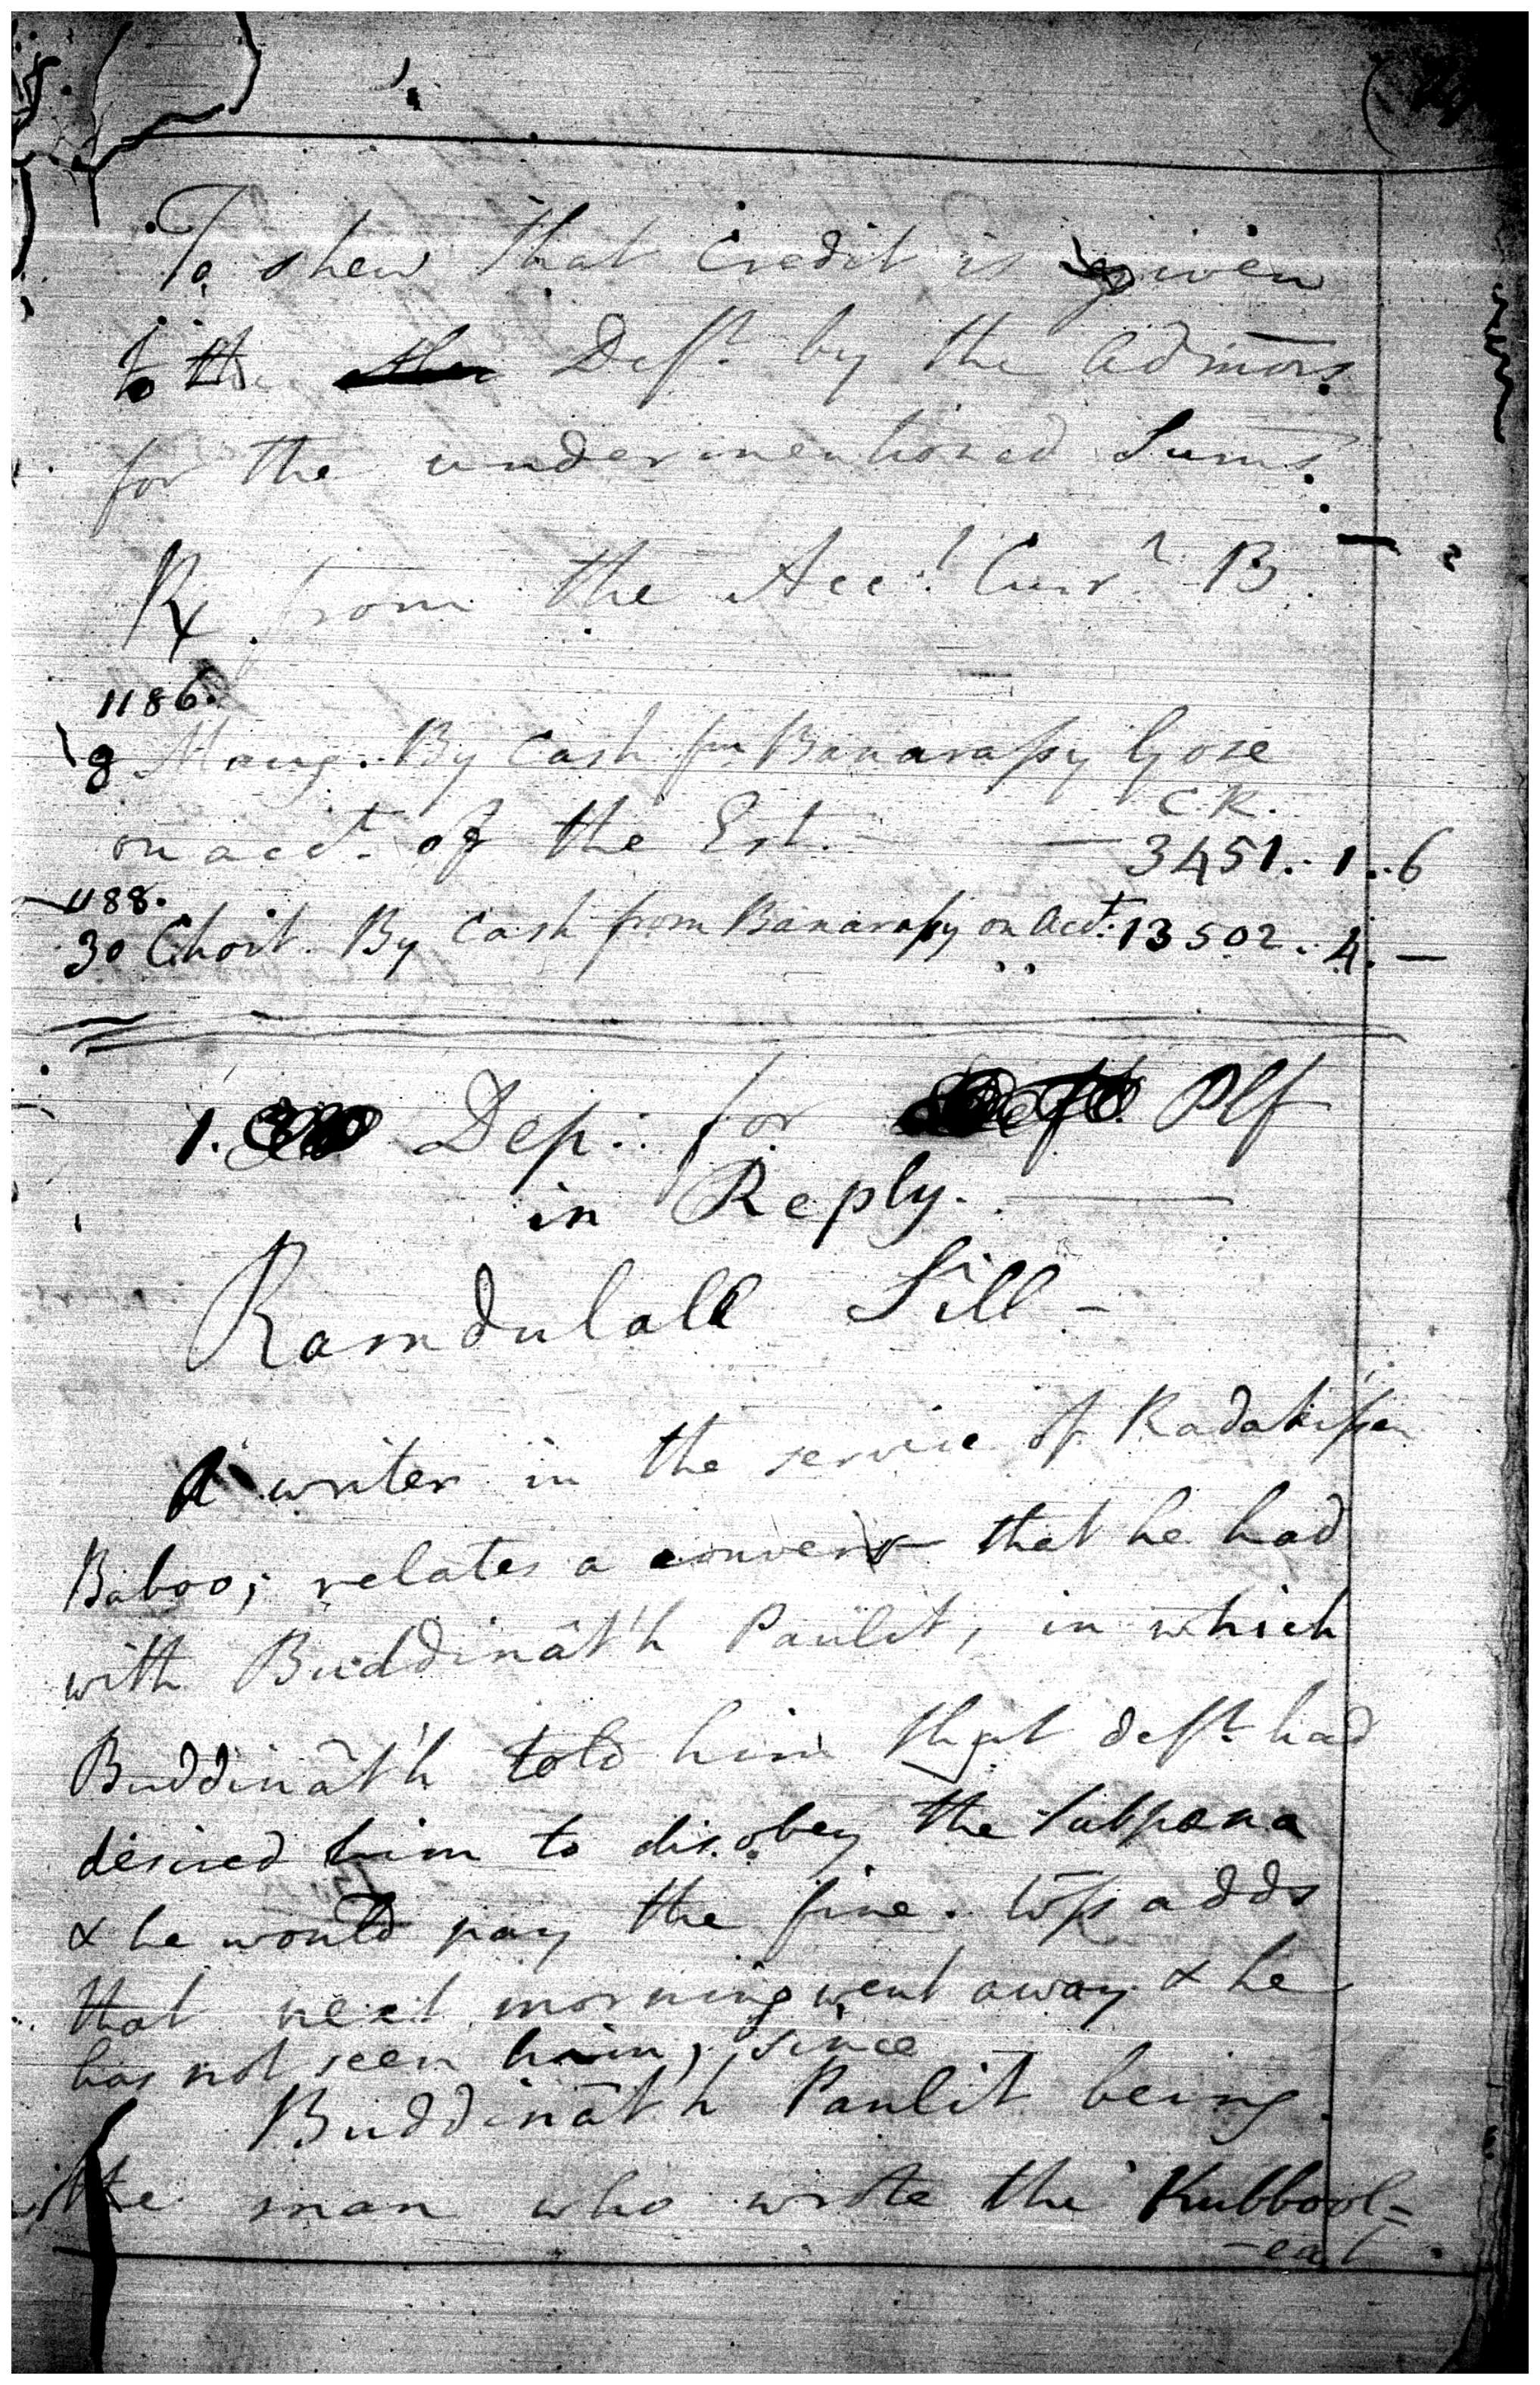 To shew that Credit is given
to the Deft. by the Admors.
for the undermentioned Sums.
from the Acct. Curt. B.
1186.
8 Maug. By Cash fm Banarassy Gose
C.R.
on acct. of the Est. — 3451..1..6
1188.
30 Choit. By Cash from Banarassy on Acct: 13502..4.—
1. Dep.: for Plf
in Reply.
Ramdulall Sill -
A writer in the service of Radakissen
Baboo; relates a convers that he had
with Buddinât'h Paulit, in which
Buddinât'h told him that deft. had
desired him to disobey the Subpœna
& he would pay the fine. Wss adds
that next morning went away & he
has not seen him, since
Buddinât'h Paulit being
the man who wrote the Kubbool=
-eat